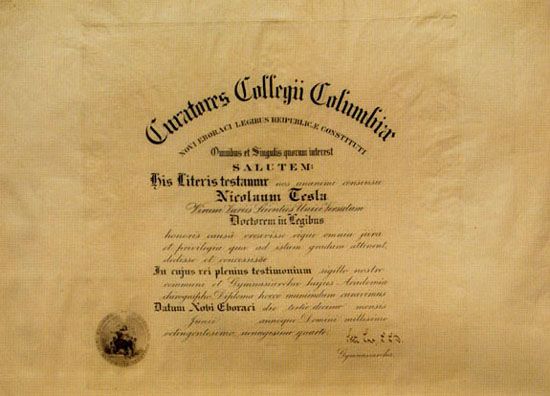 Curatores Collegii Columbiae
NOVI EBORACI LEGIBUS REIPUBLICÆ CONSTITUTI
Omnibus et Singulis quorum interest
SALUTEM:
His Literis testamur nos unanimi consensu
Nicolaum Tesla
Virum Variis Scientiis Versatum
Doctorem in Legibus
honoris causâ creavisse eique omnia jura
et privilegia quæ ad istum gradum attinent,
dedisse et concessisse
In cujus rei plenius testimonium sigillo nostro
communi et Gymnasiarchæ hujus Academiæ
chirographo Diploma hocce muniendum curavimus
Datum Novi Eboraci die tertio decimo mensis
Junii annoque Domini millesimo
octingentesimo nonagesimo quarto.
Gymnasiarcha.